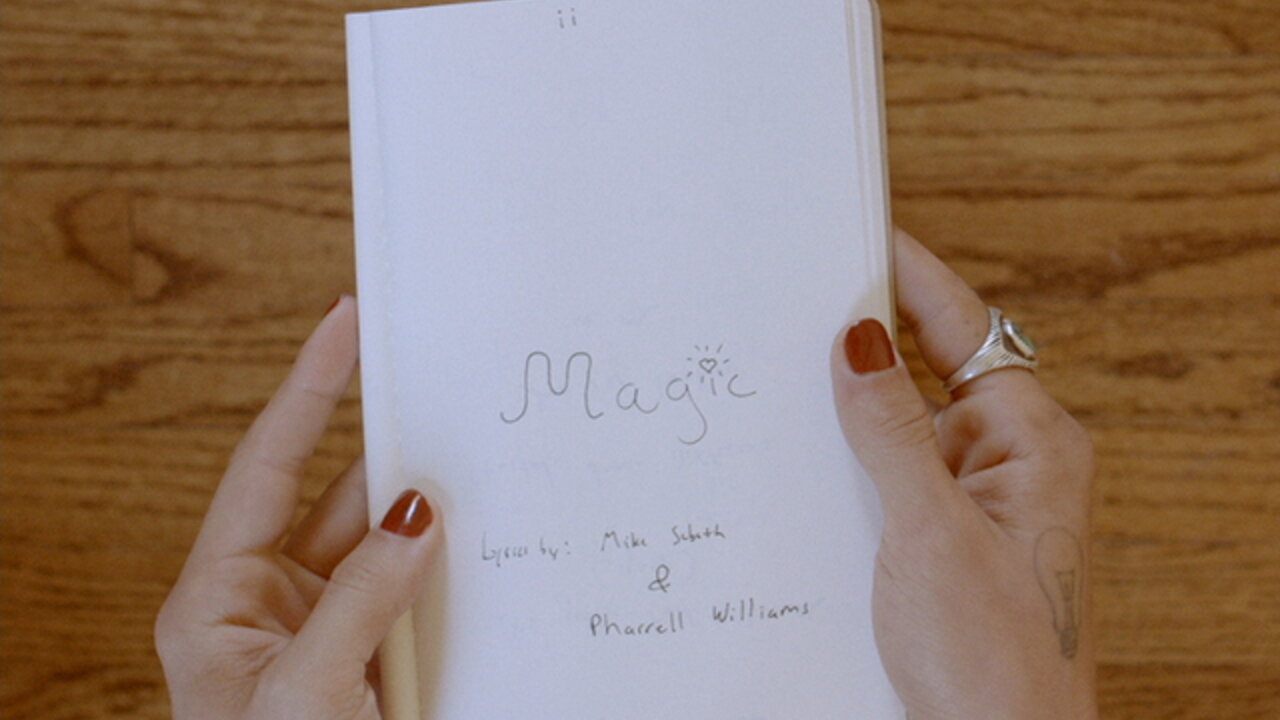 ii
Magic
Lyrics by: Mike Sabath
&
Pharrell Williams